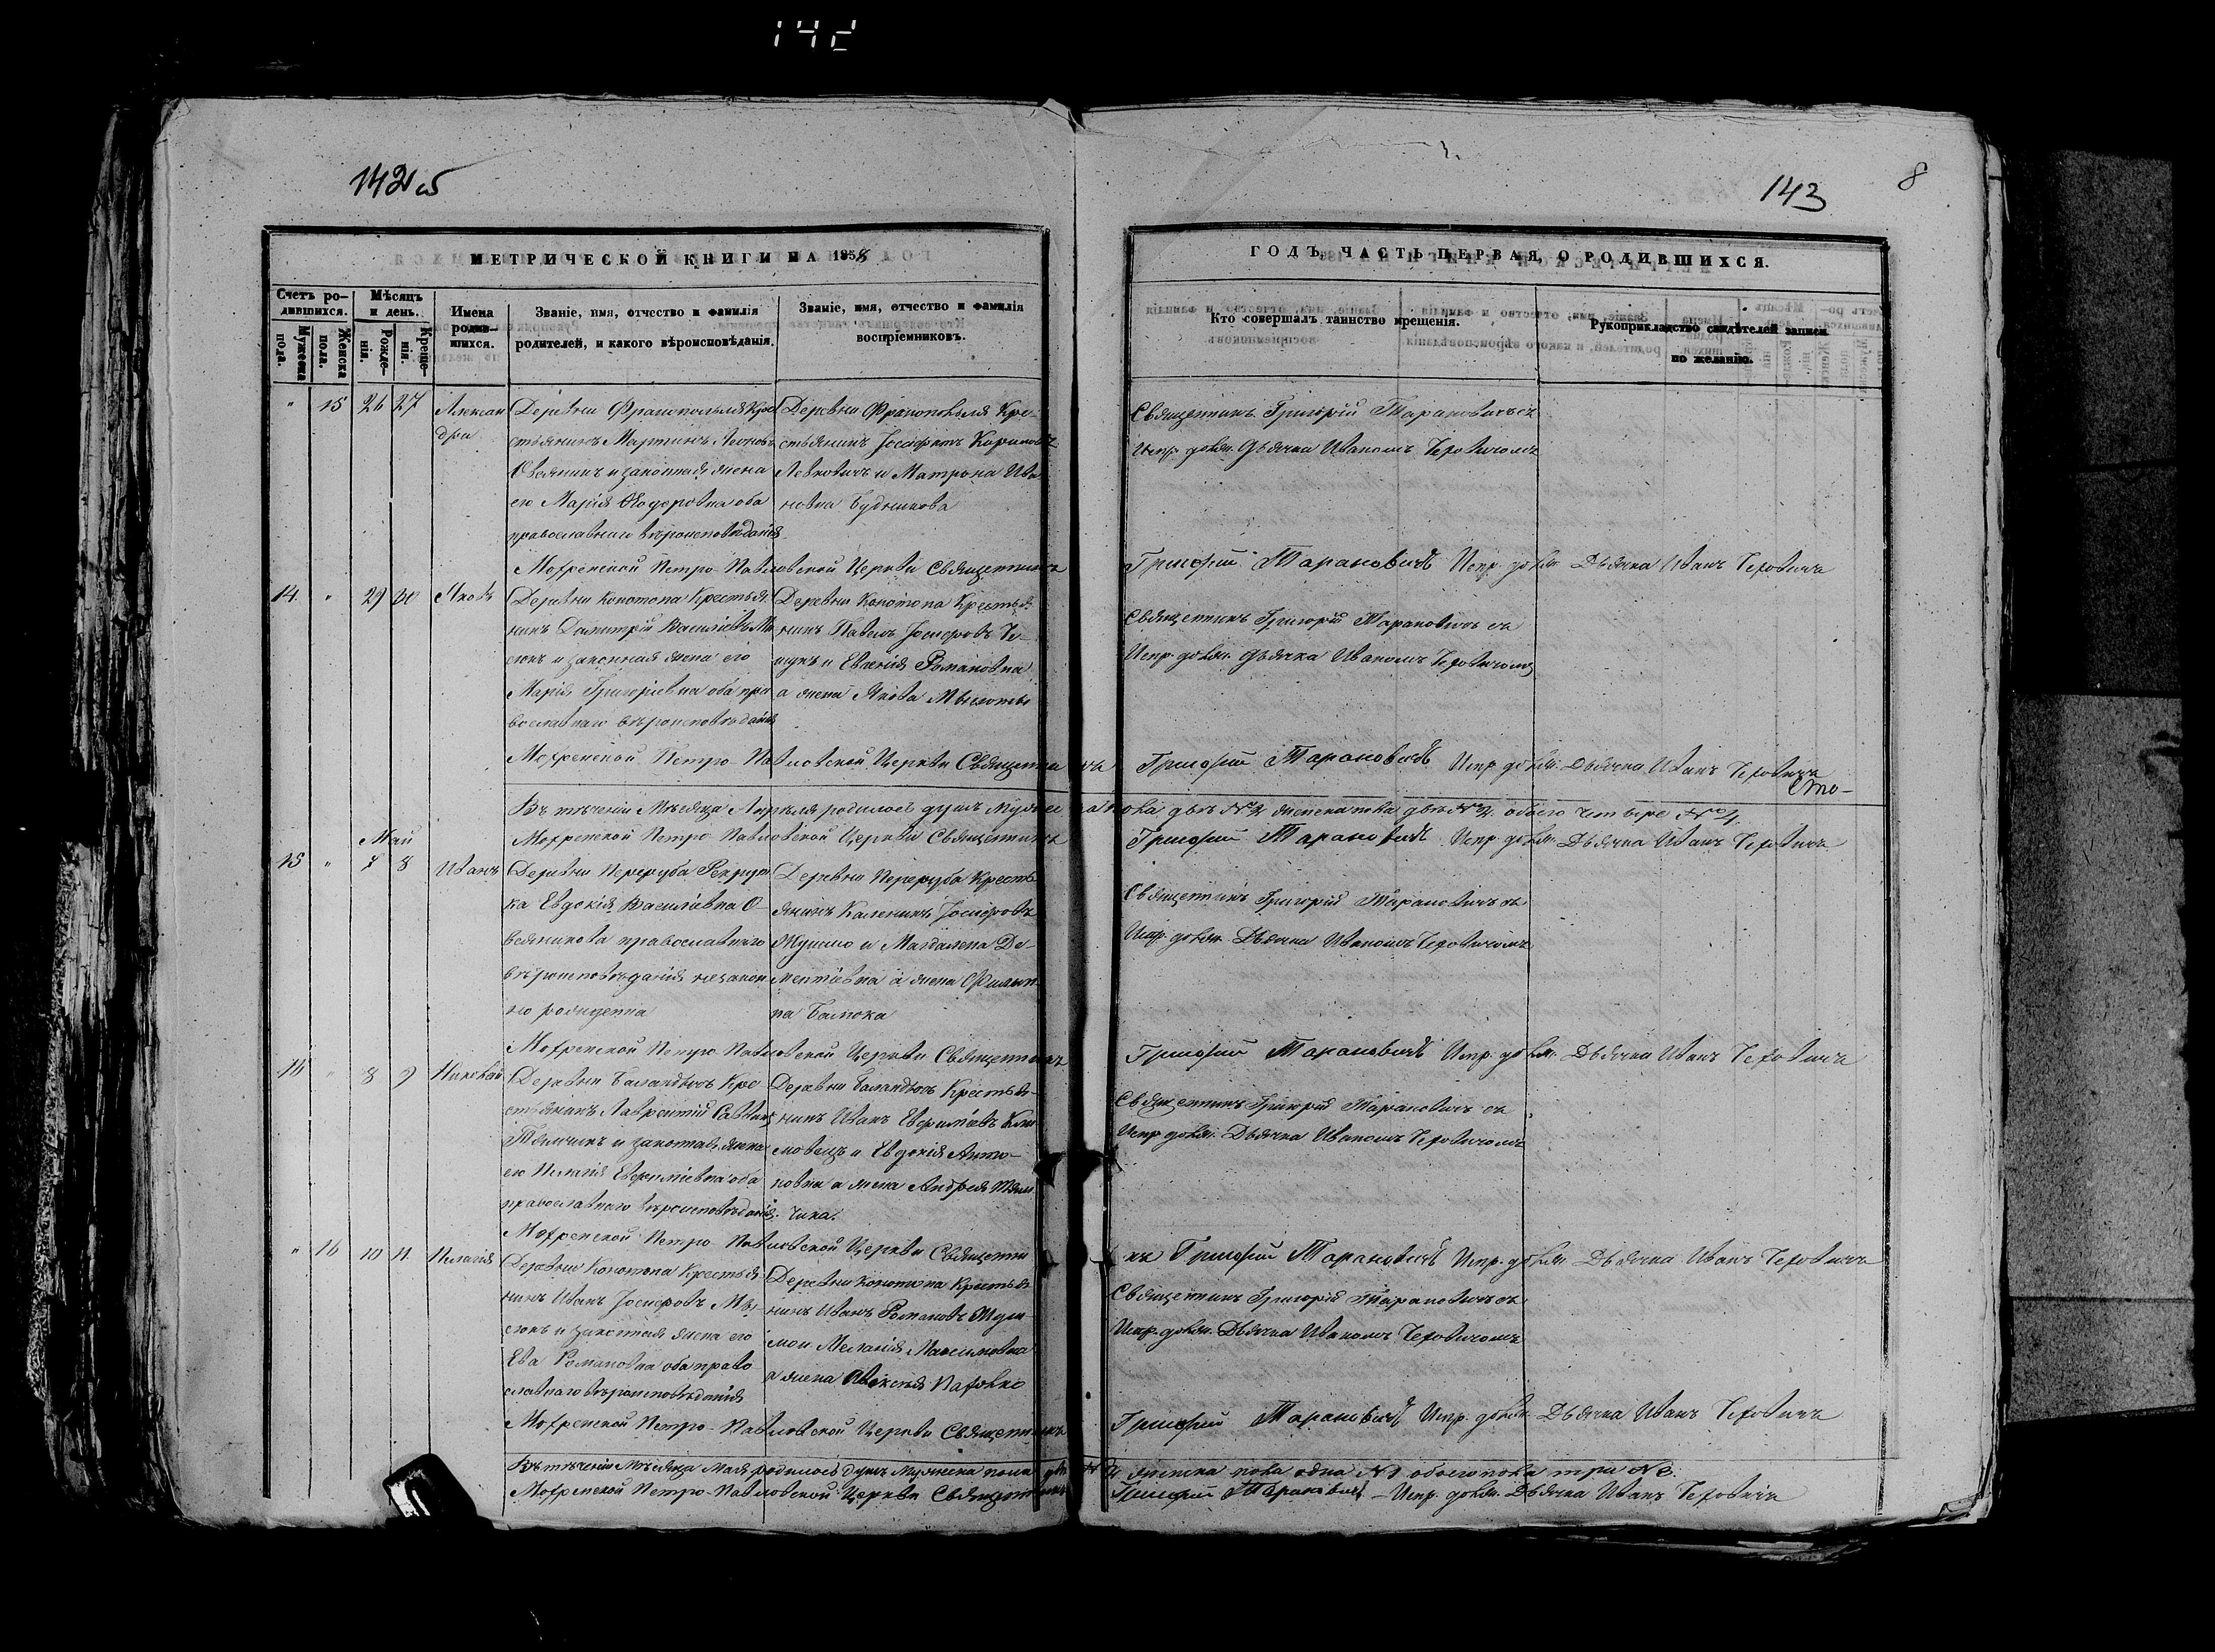 142
142 об
143
8
МЕТРИЧЕСКОЙ КНИГИ НА 1858
ГОДЪ, ЧАСТЬ ПЕРВАЯ, О РОДИВШИХСЯ.
Счетъ ро-
дившихся.
Мужеска
пола.
Женска
пола.
Мѣсяцъ
и день.
Рожде-
нія.
Креще-
нія.
Имена
родив-
шихся.
Званіе, имя, отчество и фамилія
родителей, и какого вѣроисповѣданія.
Званіе, имя, отчество и фамилія
воспріемниковъ.
Кто совершалъ таинство крещенія.
Рукоприкладство свидѣтелей записи
по желанію.
" 15 26 27
Алексан
дра
стьянинъ Мартинъ Леоновъ
Овсяникъ и законная жена
его Марія Ѳодоровна оба
православнаго вѣроисповѣданія
стьянинъ Іосифатъ
Левковичъ и Матрона Ива
новна Будникова
Священникъ Григорій Тарановичъ съ
Испр. должн. Дьячка Иваномъ Теровичомъ
Мохренской Петро-Павловской Церкви Священникъ Григорій Тарановичъ Испр. должн. Дьячка Иванъ Теровичъ
14. " 29 30
Яковъ
Деревни Конотопа Крестья
нинъ Димитрій Василіевъ
сюкъ и законная жена его
Марія Григоріевна оба пра
вославнаго вѣроисповѣданія
Деревни Конотопа Крестья
нинъ Павелъ Іосифовъ
и Евгенія Романовна
а жена Якова
Священникъ Григорій Тарановичъ съ
Испр. должн. Дьячка Иваномъ Теровичомъ
Мохренской Петро-Павловской Церкви Священникъ Григорій Тарановичъ Испр. должн. Дьячка Иванъ Теровичъ
Въ теченіи Мѣсяца Апрѣля родилось душъ Мужеска пола двѣ № 2 женска пола двѣ № 2. обоего четыре № 4.
Мохренской Петро-Павловской Церкви Священникъ Григорій Тарановичъ Испр. должн. Дьячка Иванъ Теровичъ
Май
15 " 7 8
Иванъ
Деревни Переруба Рекрут
ка Евдокія Василіевна О-
всяникова православнаго
вѣроисповѣданія незакон
но рожденна
Деревни Переруба Кресть
янинъ Каленикъ Іосифовъ
и Магдалена Де-
ментіевна а жена Филип
па Балюка
Священникъ Григорій Тарановичъ съ
Испр. должн. Дьячка Иваномъ Теровичомъ
Мохренской Петро-Павловской Церкви Священникъ Григорій Тарановичъ Испр. должн. Дьячка Иванъ Теровичъ
16 " 8 9
Николай
Деревни Баландичъ Кре
стьянинъ Лаврентій Саввинъ
Тямчикъ и законная жена
его Пелагія Евфиміевна оба
православнаго вѣроисповѣданія
Деревни Баландичъ Крестья-
нинъ Иванъ Евфиміевъ Кли
мовецъ и Евдокія Анто-
новна а жена Андрея Тям
чика.
Священникъ Григорій Тарановичъ съ
Испр. должн. Дьячка Иваномъ Теровичомъ
Мохренской Петро-Павловской Церкви Священникъ Григорій Тарановичъ Испр. должн. Дьячка Иванъ Теровичъ
" 16 10 11.
Пелагія
Деревни Конотопа Крестья
нинъ Иванъ Іосифовъ
сюкъ и законная жена его
Ева Романовна оба право
славнаго вѣроисповѣданія
Деревни Конотопа Крестья
нинъ Иванъ Романовъ
Меланія Максимовна
а жена Алексѣя
Священникъ Григорій Тарановичъ съ
Испр. должн. Дьячка Иваномъ Теровичомъ
Мохренской Петро-Павловской Церкви Священникъ Григорій Тарановичъ Испр. должн. Дьячка Иванъ Теровичъ
Въ теченіи Мѣсяца Мая родилось душъ Мужеска пола двѣ № 2 женска пола одна № 1 обоего пола три № 3.
Мохренской Петро-Павловской Церкви Священникъ Григорій Тарановичъ – Испр. должн. Дьячка Иванъ Теровичъ